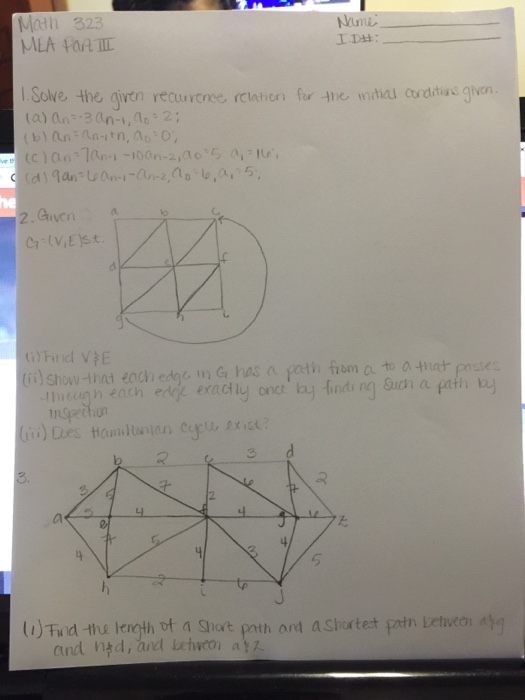 Math 323
Name:
MEA Part III
I.D#:
1 Solve the given recurrence relation for the initial conditions given.
(a) an=-3an-1, a0=2;
(b) an=an-1+n, a0=0;
(c) an=7an-1-10an-2, a0=5 a1=16;
(d) 9an=6an-1-an-2, a0=6, a1=5;
2. Given
G=(V,E) s.t.
a b c
d e f
g h i
(i) Find V&E
(ii) Show that each edge in G has a path from a to a that passes
through each edge exactly once by finding such a path by
inspection
(iii) Does Hamiltonian cycle exist?
3.
b 2 c 3 d
3 5 7 2 6 7 2
a 3 e 4 f 4 g 6 z
4 7 5 4 3 4 5
h 2 i 6 j
(i) Find the length of a short path and a shortest path between a&g
and h&d, and between a&z